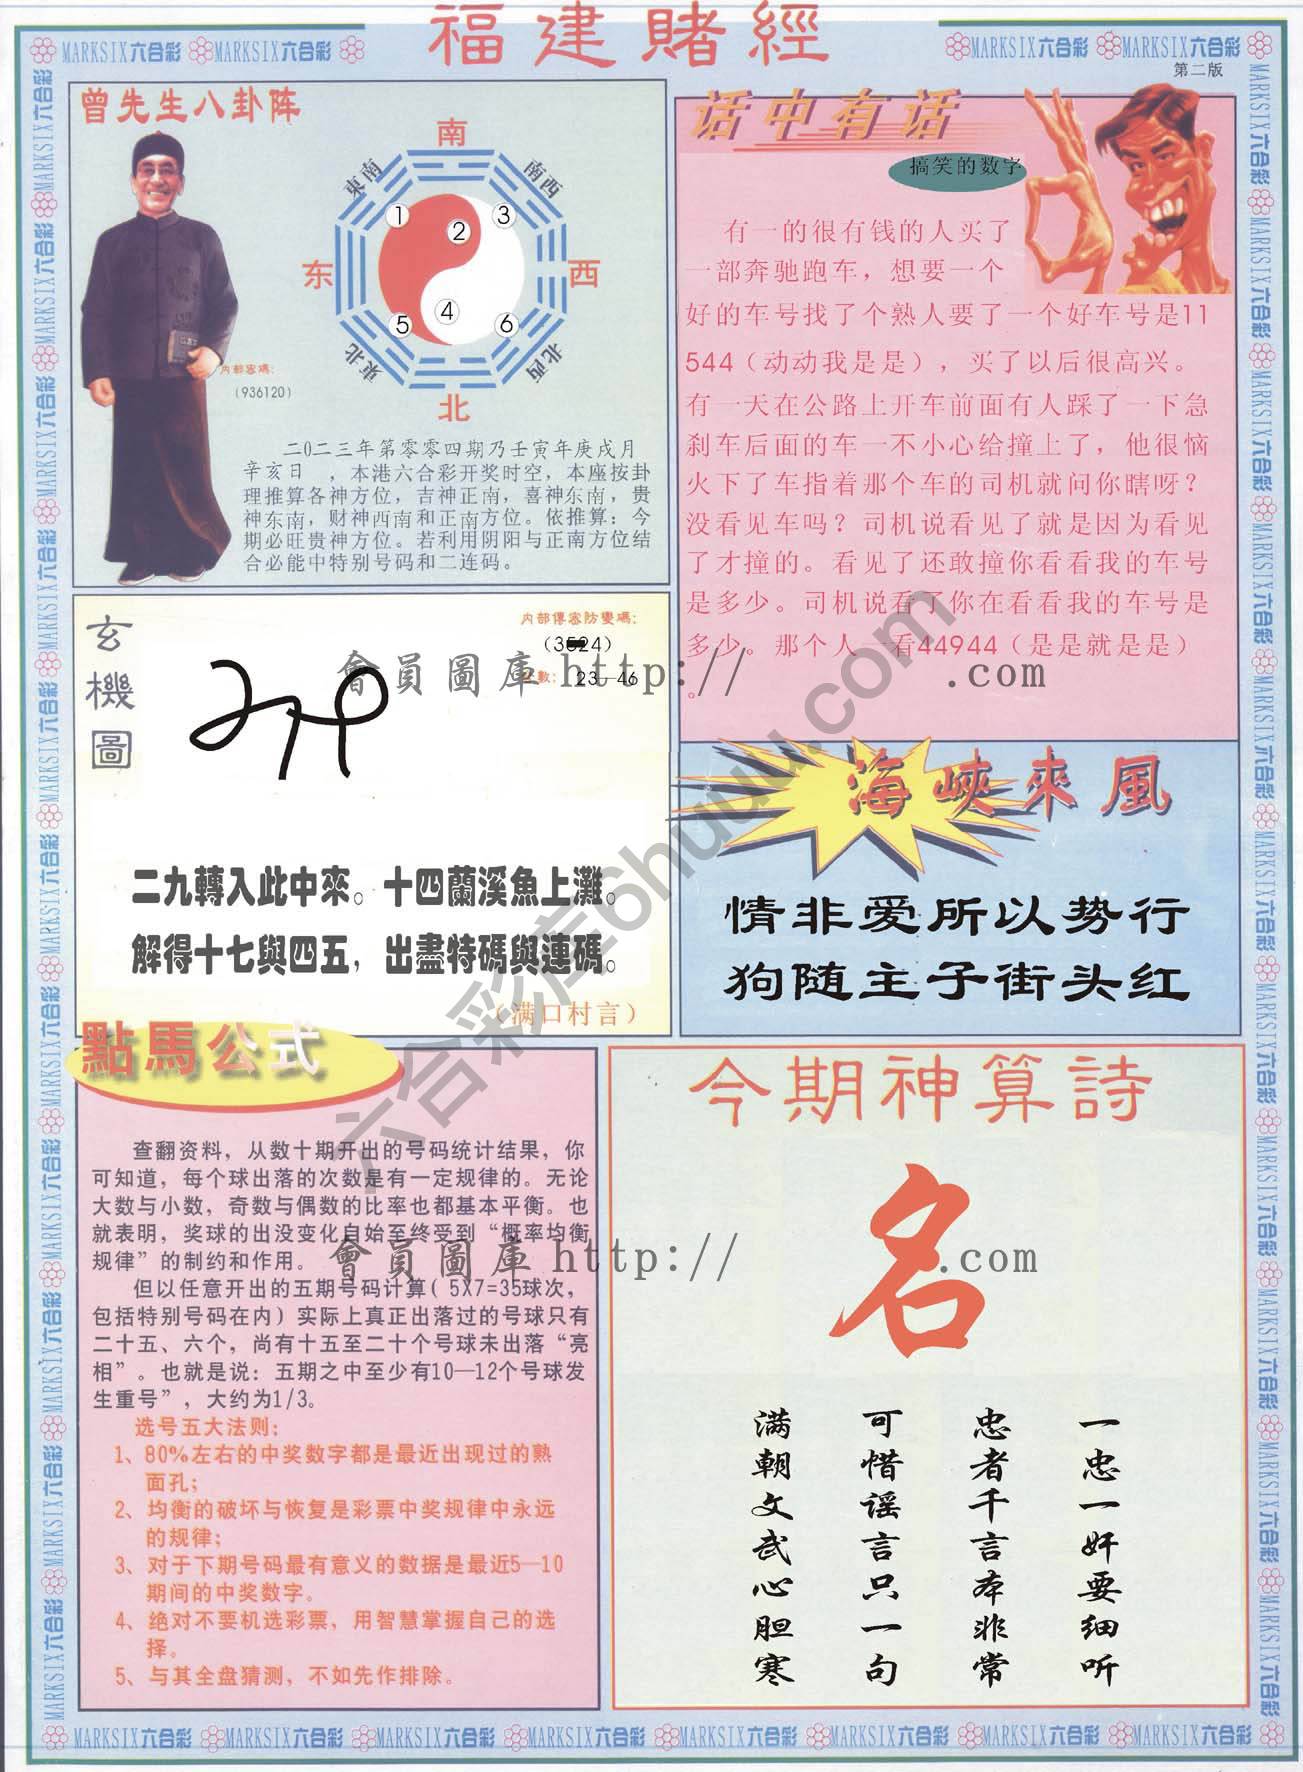 福建賭經
MARKSIX六合彩 MARKSIX六合彩
MARKSIX六合彩 MARKSIX六合彩
第二版
曾先生八卦阵
南
東南
南西
1
2
3
东
西
4
5
6
東北
北西
北
内部密碼:
(936120)
二0二三年第零零四期乃壬寅年庚戌月
辛亥日 ,本港六合彩开奖时空,本座按卦
理推算各神方位,吉神正南,喜神东南,贵
神东南,财神西南和正南方位。依推算:今
期必旺贵神方位。若利用阴阳与正南方位结
合必能中特别号码和二连码。
话中有话
搞笑的数字
有一的很有钱的人买了
一部奔驰跑车,想要一个
好的车号找了个熟人要了一个好车号是11
544(动动我是是),买了以后很高兴。
有一天在公路上开车前面有人踩了一下急
刹车后面的车一不小心给撞上了,他很恼
火下了车指着那个车的司机就问你瞎呀?
没看见车吗?司机说看见了就是因为看见
了才撞的。看见了还敢撞你看看我的车号
是多少。司机说看了你在看看我的车号是
多少。那个人一看44944(是是就是是)
。
玄機圖
内部傳密防變碼:
(3524)
數: 23—46
會員圖庫 http:// .com
二九轉入此中來。十四蘭溪魚上灘。
解得十七與四五,出盡特碼與連碼。
(满口村言)
海峽來風
情非爱所以势行
狗随主子街头红
六合彩库6huuu.com
點馬公式
查翻资料,从数十期开出的号码统计结果,你
可知道,每个球出落的次数是有一定规律的。无论
大数与小数,奇数与偶数的比率也都基本平衡。也
就表明,奖球的出没变化自始至终受到“概率均衡
规律”的制约和作用。
但以任意开出的五期号码计算(5X7=35球次,
包括特别号码在内)实际上真正出落过的号球只有
二十五、六个,尚有十五至二十个号球未出落“亮
相”。也就是说:五期之中至少有10—12个号球发
生重号”,大约为1/3。
选号五大法则:
1、80%左右的中奖数字都是最近出现过的熟
面孔;
2、均衡的破坏与恢复是彩票中奖规律中永远
的规律;
3、对于下期号码最有意义的数据是最近5—10
期间的中奖数字。
4、绝对不要机选彩票,用智慧掌握自己的选
择。
5、与其全盘猜测,不如先作排除。
會員圖庫 http:// .com
今期神算詩
名
一忠一奸要细听
忠者千言本非常
可惜谣言只一句
满朝文武心胆寒
MARKSIX六合彩 MARKSIX六合彩 MARKSIX六合彩 MARKSIX六合彩 MARKSIX六合彩 MARKSIX六合彩 MARKSIX六合彩 MARKSIX六合彩